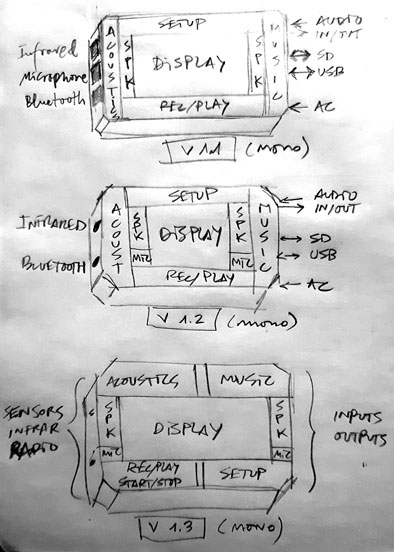 SETUP
AUDIO
IN/OUT
Infrared
Microphone
Bluetooth
ACOUSTICS
SPK
DISPLAY
SPK
MUSIC
SD
USB
REC/PLAY
AC
V 1.1 (MONO)
SETUP
AUDIO
IN/OUT
INFRARED
BLUETOOTH
ACOUST
SPK
MIC
DISPLAY
SPK
MIC
MUSIC
SD
USB
REC/PLAY
AC
V 1.2 (MONO)
ACOUSTICS MUSIC
SENSORS
INFRAR
RADIO
SPK
MIC
DISPLAY
SPK
MIC
INPUTS
OUTPUTS
REC/PLAY
START/STOP
SETUP
V 1.3 (MONO)